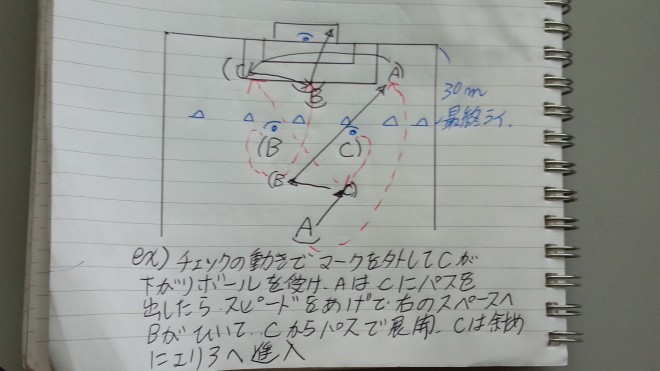 (C
A)
B
30m
最終ライ.
(B
C)
(B
C)
A
ex) チェックの動きでマークを外してCが
下がりボールを受け、AはCにパスを
出したらスピードをあげて右のスペースへ
Bがひいて、Cからパスで展開、Cは斜め
にエリアへ進入